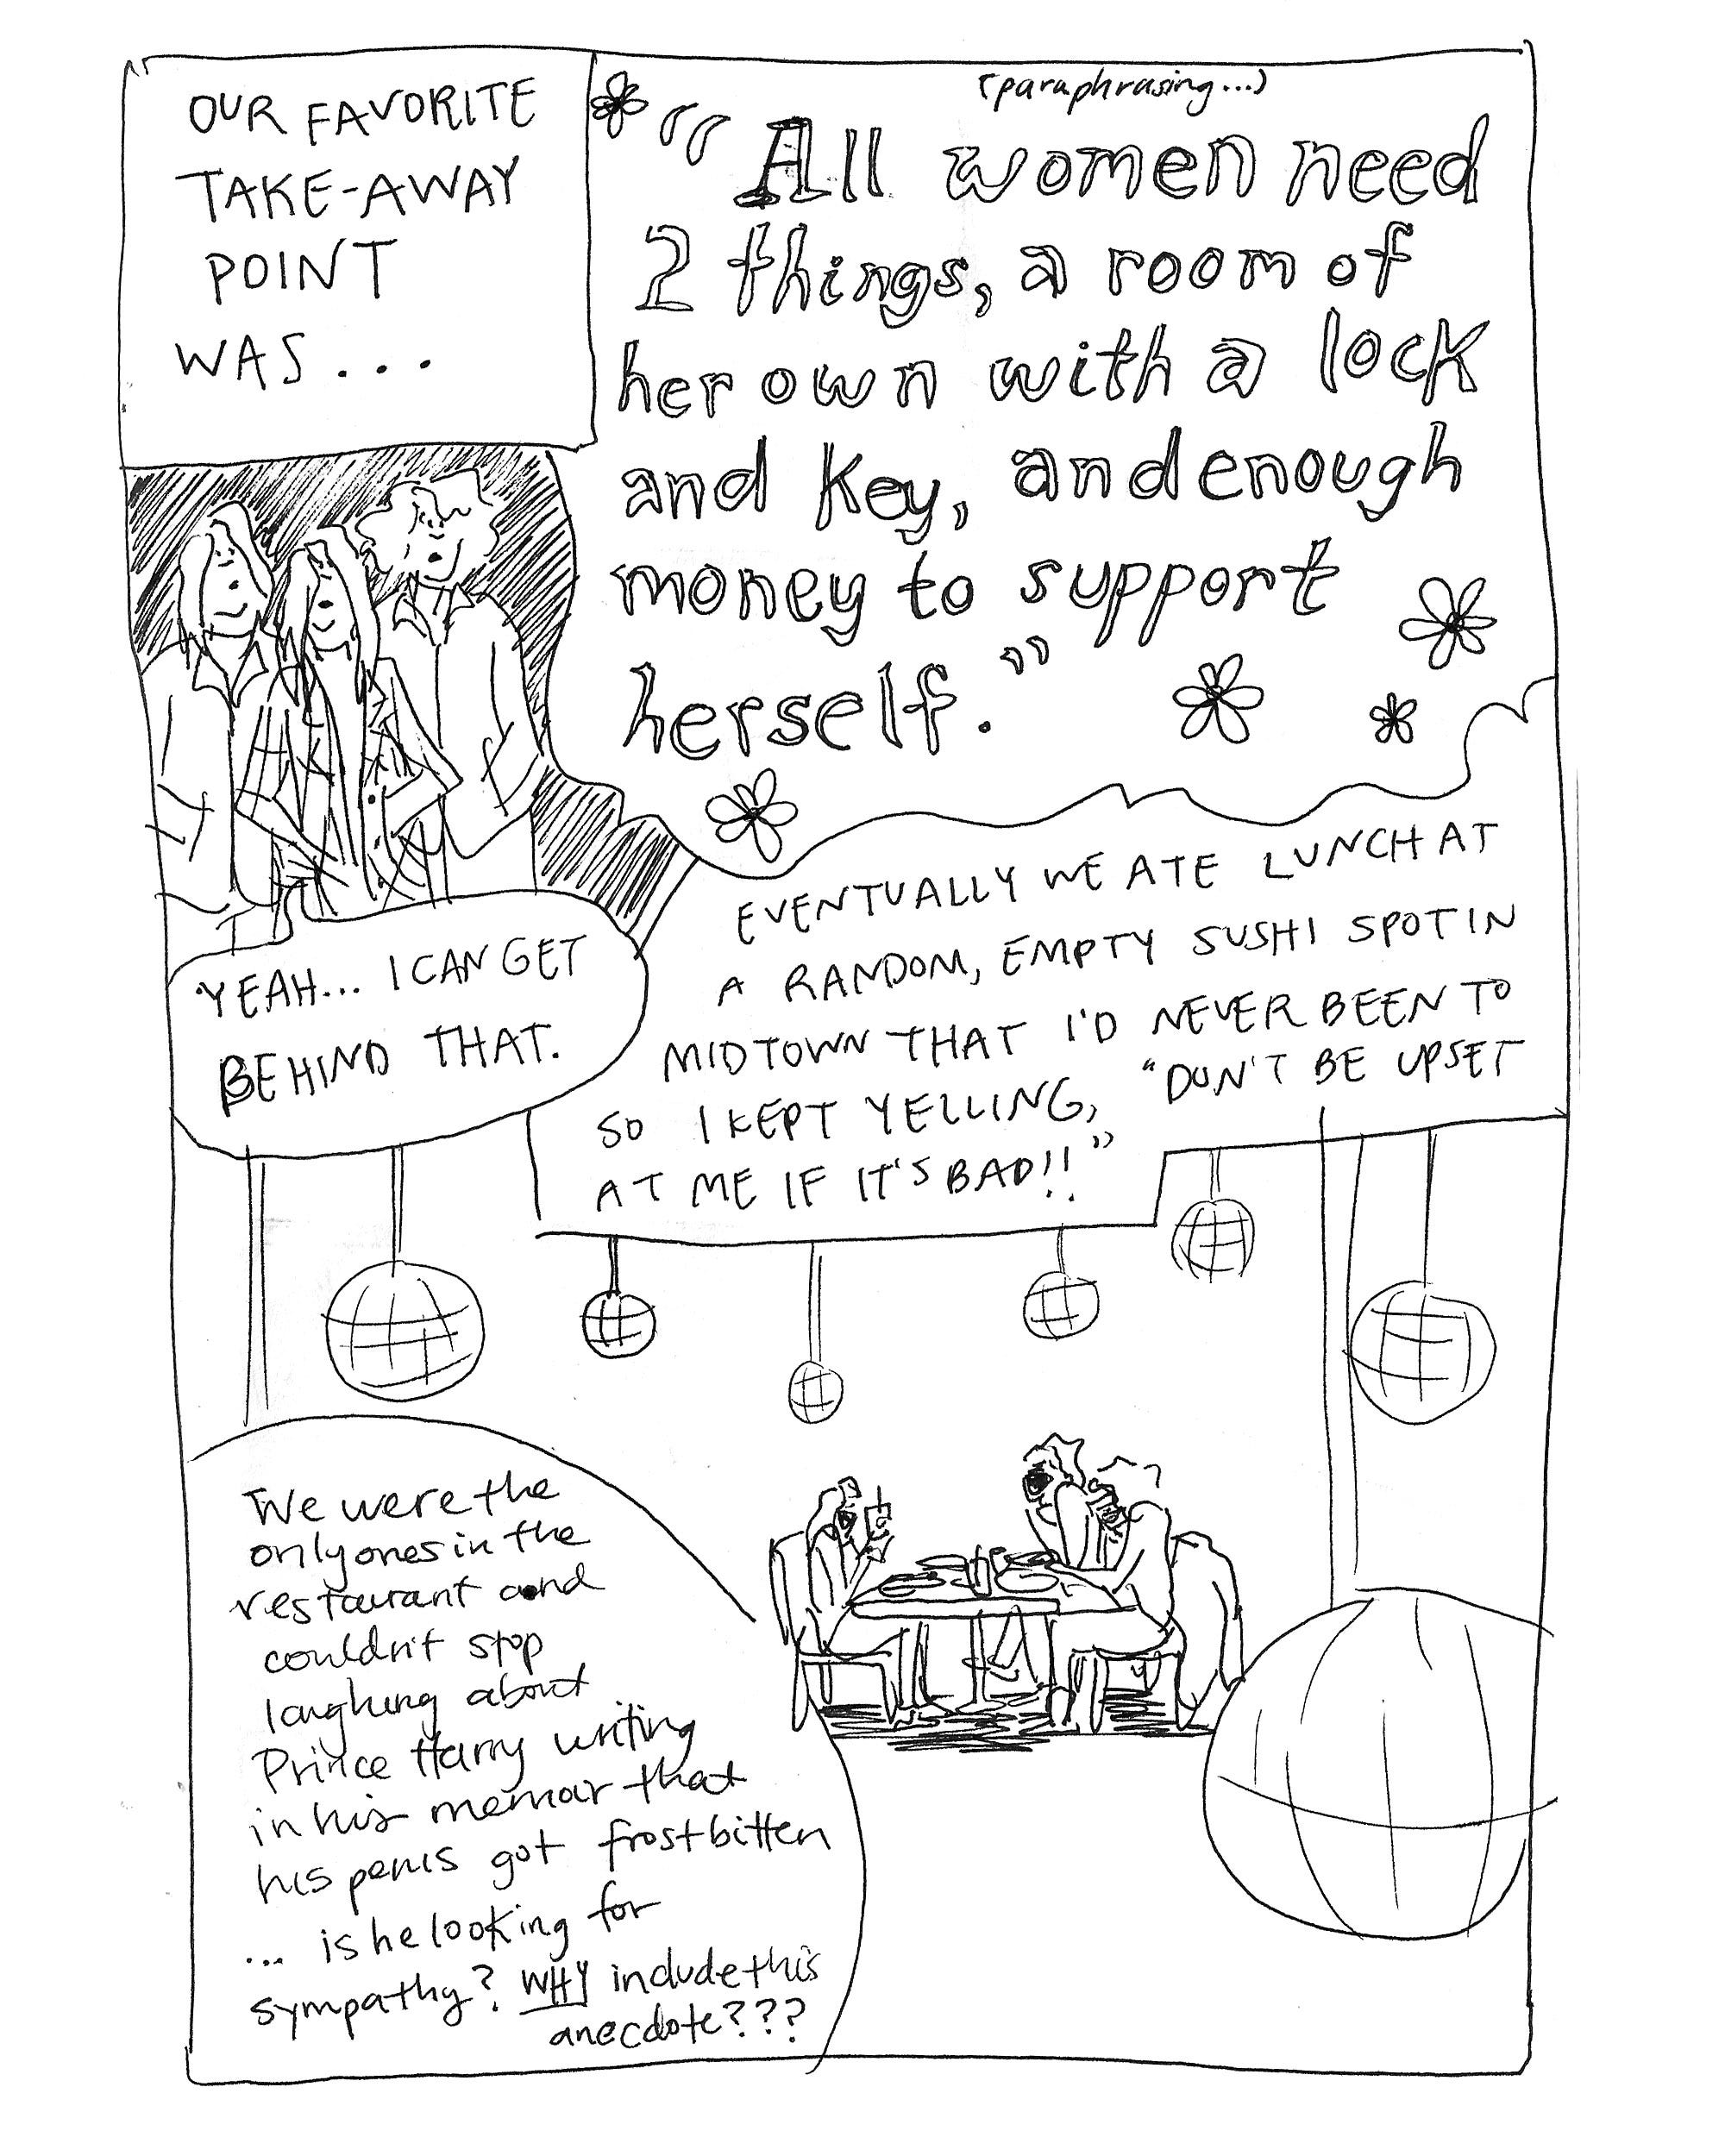 OUR FAVORITE
TAKE-AWAY
POINT
WAS...
(paraphrasing...)
"All women need
2 things, a room of
her own with a lock
and key, and enough
money to support
herself."
YEAH... I CAN GET
BEHIND THAT.
EVENTUALLY WE ATE LUNCH AT
A RANDOM, EMPTY SUSHI SPOT IN
MIDTOWN THAT I'D NEVER BEEN TO
SO I KEPT YELLING, "DON'T BE UPSET
AT ME IF IT'S BAD!!"
We were the
only ones in the
restaurant and
couldn't stop
laughing about
Prince Harry writing
in his memoir that
his penis got frostbitten
... is he looking for
sympathy? WHY include this
anecdote???